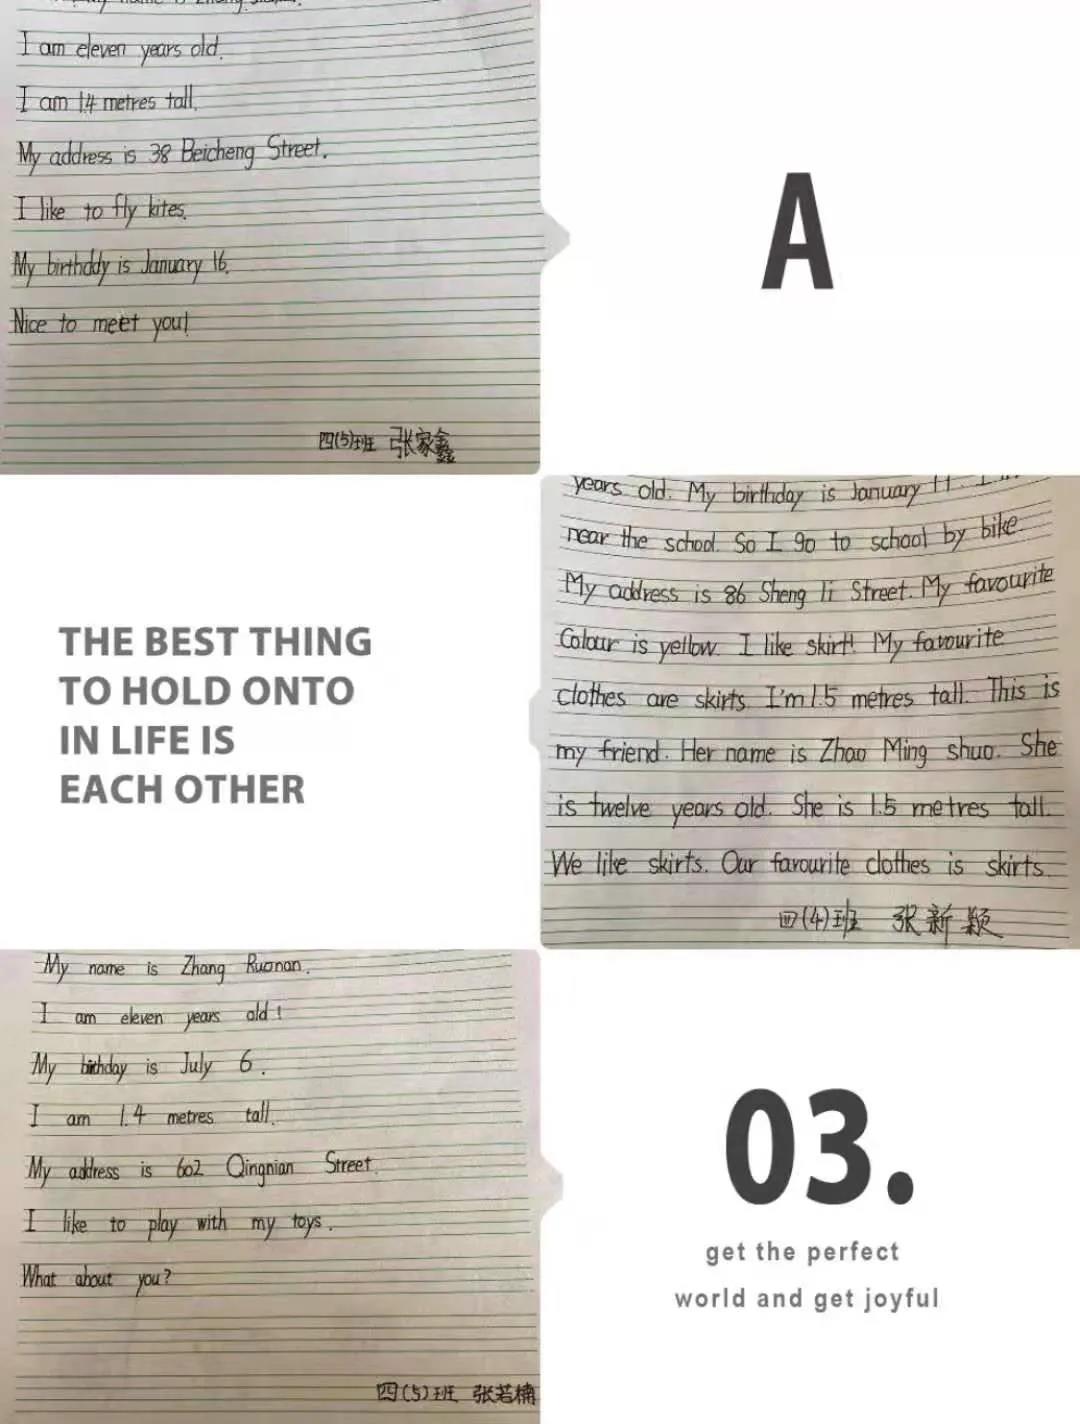 name is
I am eleven years old.
I am 1.4 metres tall.
My address is 38 Beicheng Street.
I like to fly kites.
My birthday is January 16.
Nice to meet you!
四(5)班 张家鑫
A
years old. My birthday is January
near the school. So I go to school by bike.
My address is 86 Sheng li Street. My favourite
Colour is yellow. I like skirt! My favourite
clothes are skirts. I'm 1.5 metres tall. This is
my friend. Her name is Zhao Ming shuo. She
is twelve years old. She is 1.5 metres tall.
We like skirts. Our favourite clothes is skirts.
四(4)班 张新颖
THE BEST THING
TO HOLD ONTO
IN LIFE IS
EACH OTHER
My name is Zhang Ruonan.
I am eleven years old!
My birthday is July 6.
I am 1.4 metres tall.
My address is 602 Qingnian Street.
I like to play with my toys.
What about you?
四(5)班 张若楠
03.
get the perfect
world and get joyful